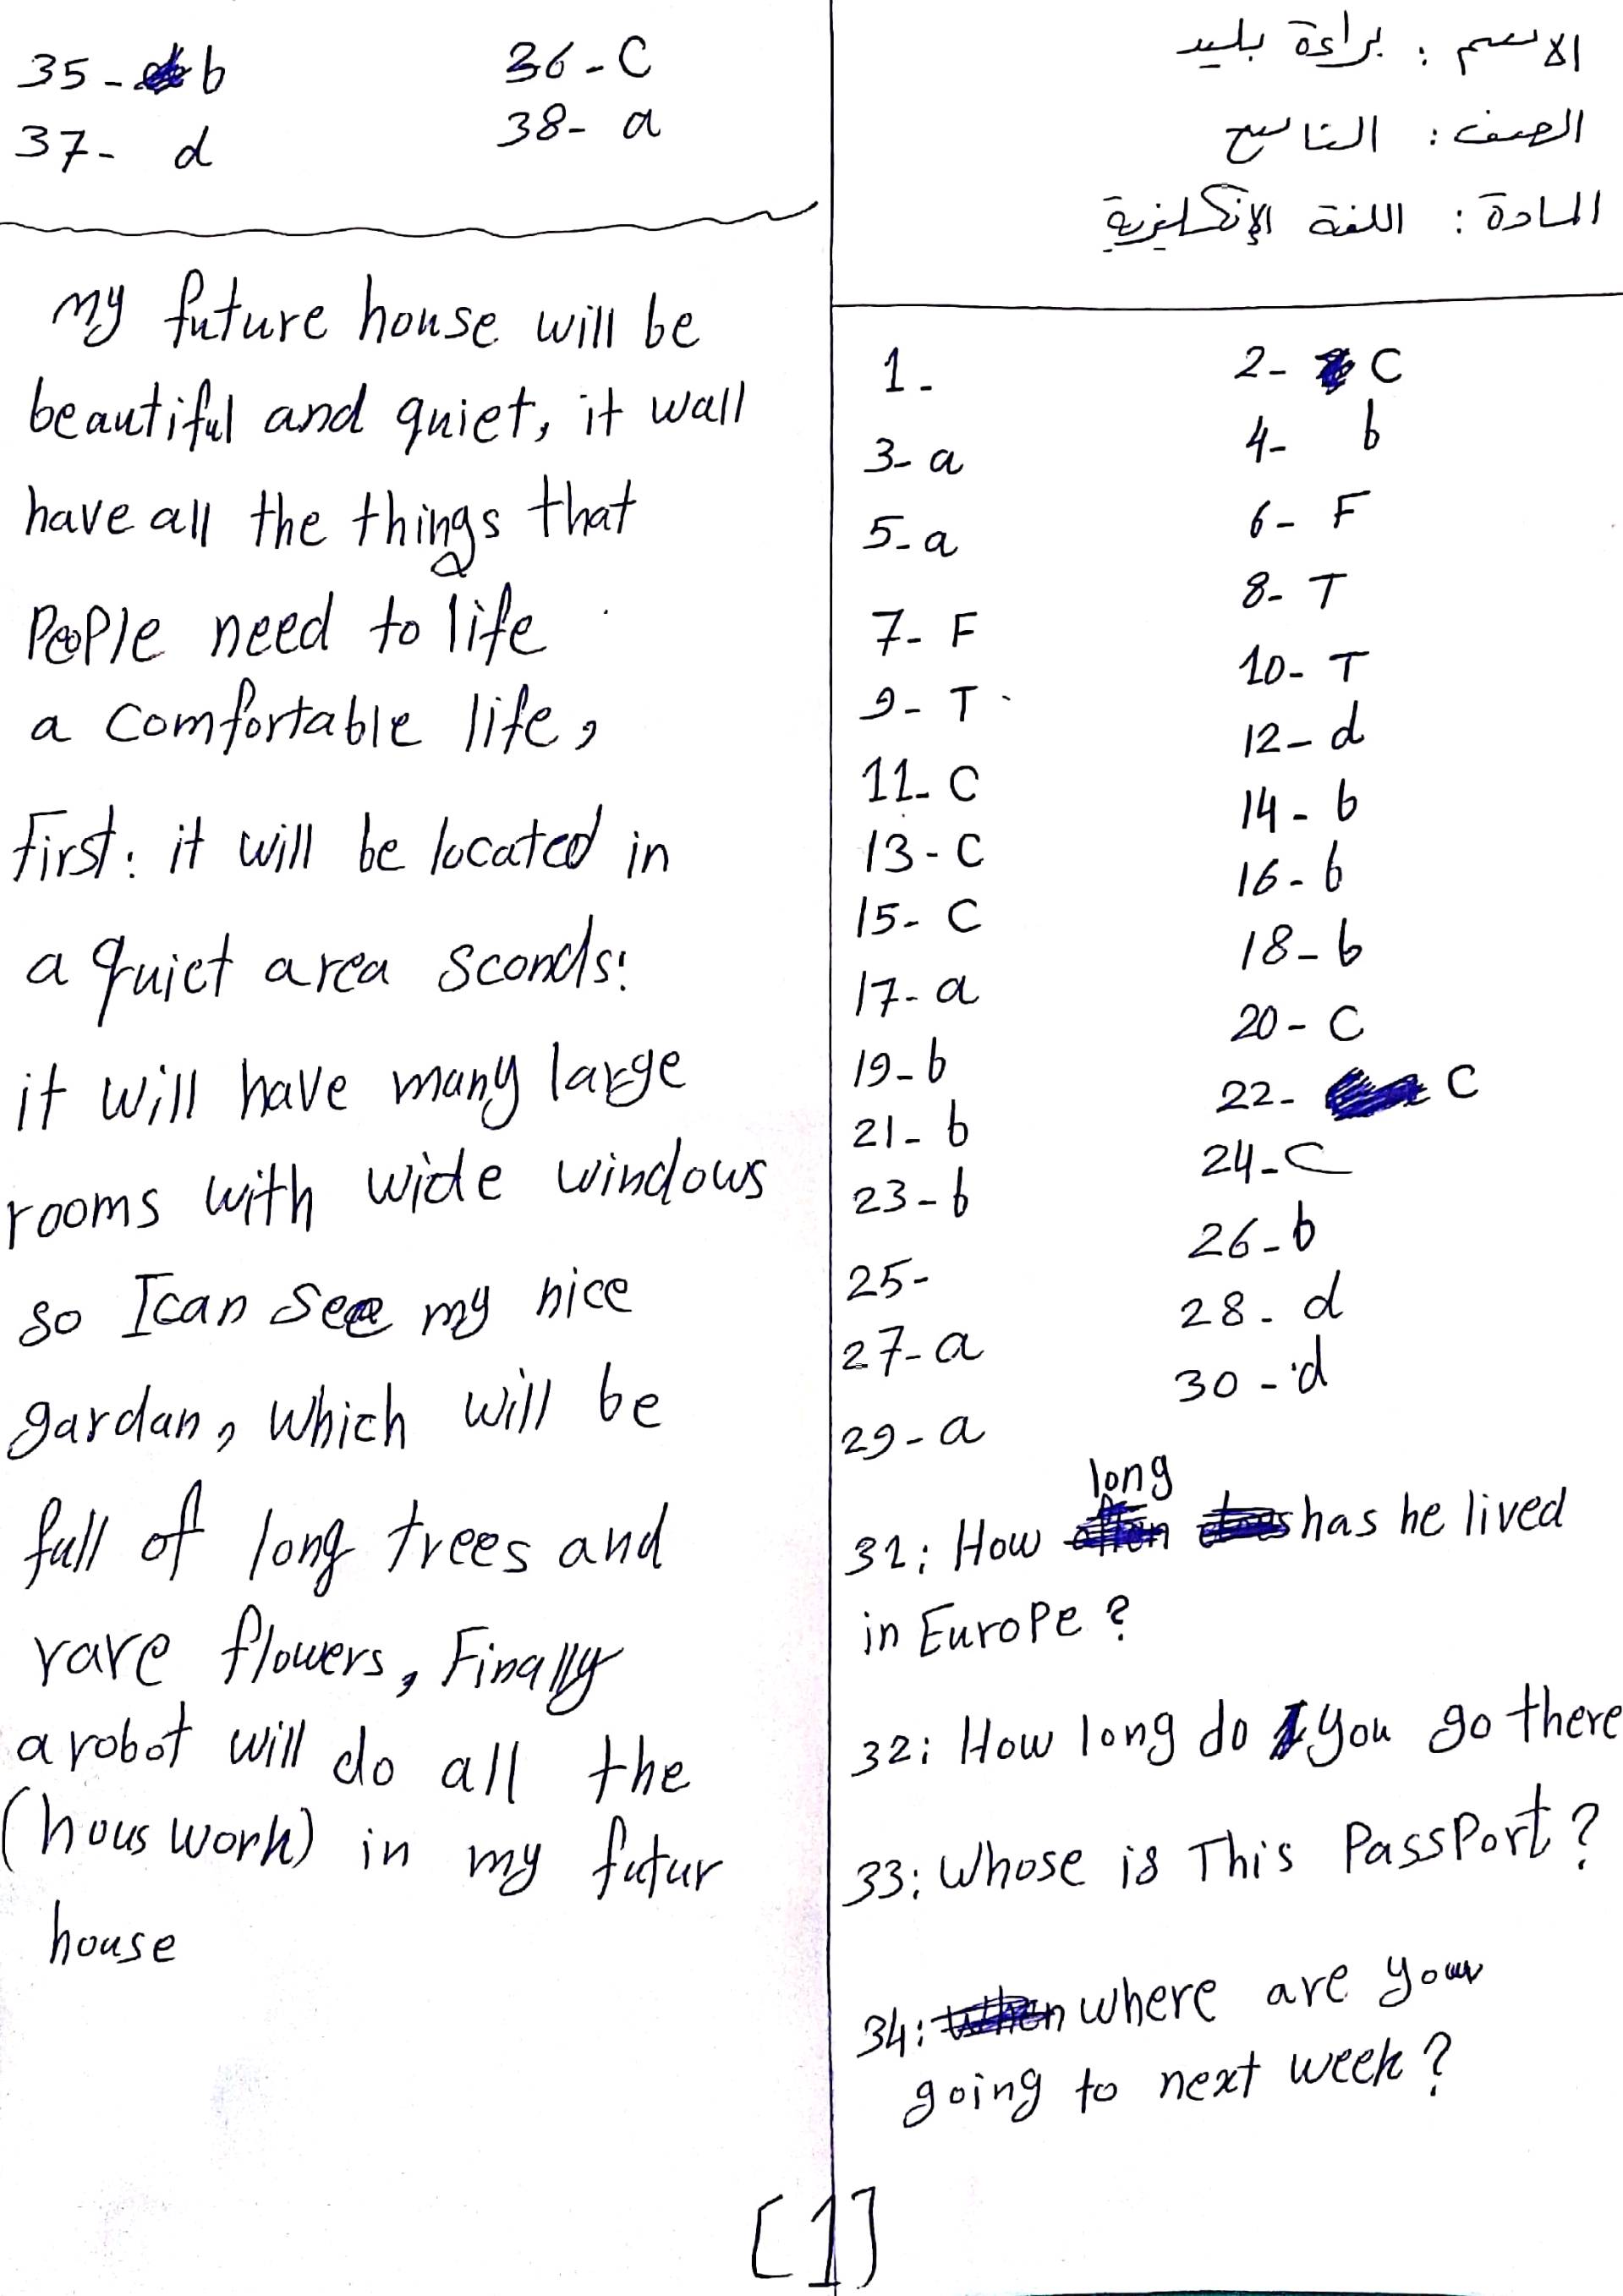 الاسم : براءة بليد
الصف : التاسع
المادة : اللغة الإنكليزية
1-
2- C
3- a
4- b
5- a
6- F
7- F
8- T
9- T
10- T
11- C
12- d
13- C
14- b
15- C
16- b
17- a
18- b
19- b
20- C
21- b
22- C
23- b
24- C
25-
26- b
27- a
28- d
29- a
30- d
31: How long has he lived
in Europe ?
32: How long do you go there
33: Whose is This Passport ?
34: where are your
going to next week ?
35- b
36- C
37- d
38- a
my future house will be
beautiful and quiet, it wall
have all the things that
People need to life
a comfortable life,
First: it will be located in
a quiet area sconds:
it will have many large
rooms with wide windows
so I can see my nice
gardan, which will be
full of long trees and
rare flowers, Finally
a robot will do all the
(hous work) in my futur
house
[1]